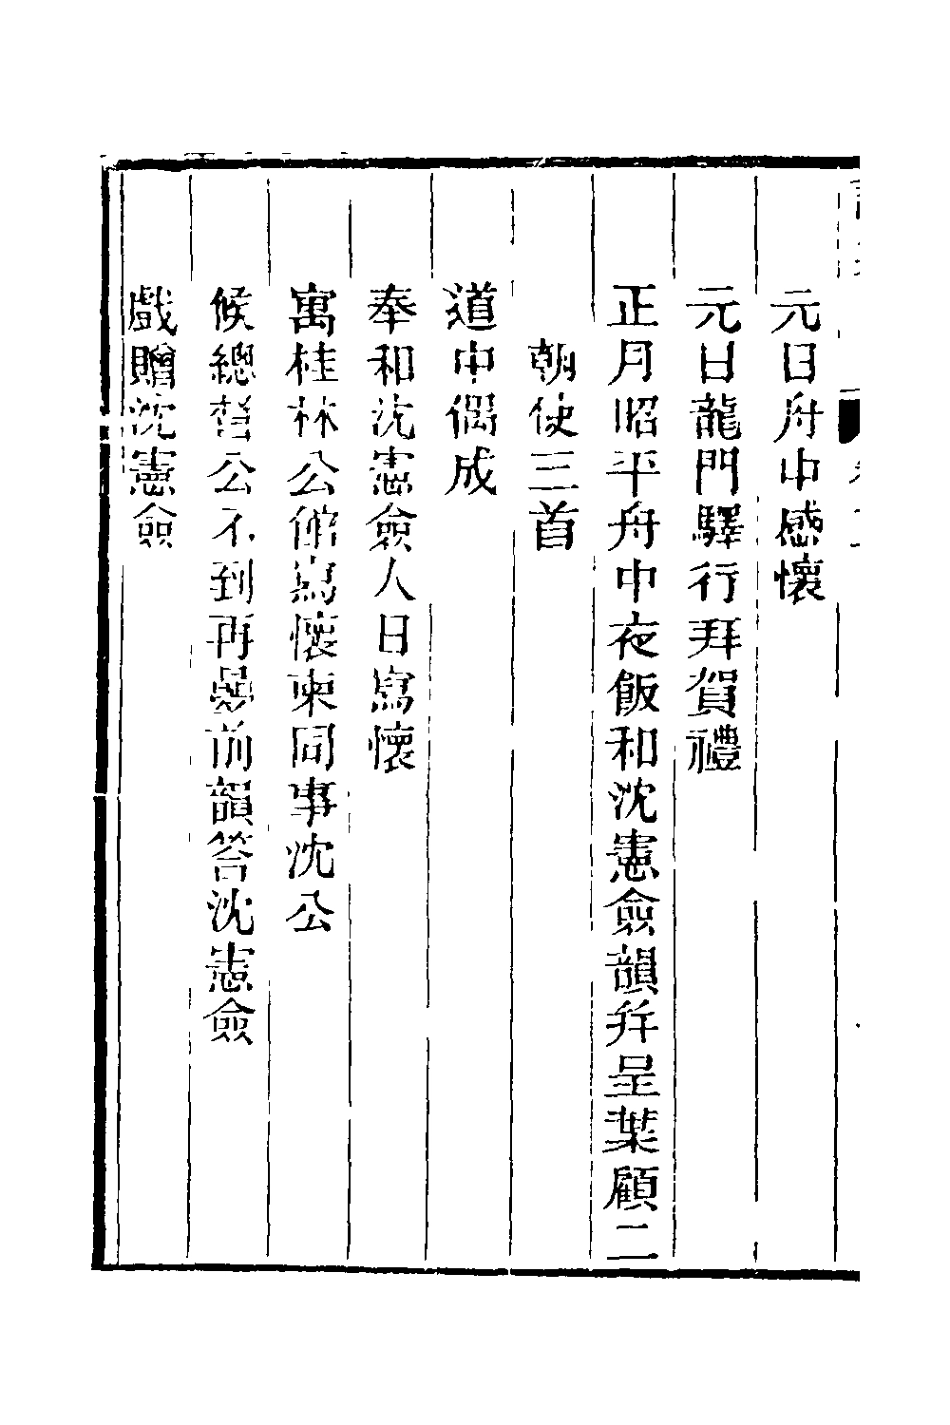 元日舟中感懷
元日龍門驛行拜賀禮
正月昭平舟中夜飯和沈憲僉韻并呈葉顧二
朝使三首
道中偶成
奉和沈憲僉人日寫懷
寓桂林公館寫懷柬同事沈公
候總督公不到再疊前韻答沈憲僉
戲贈沈憲僉